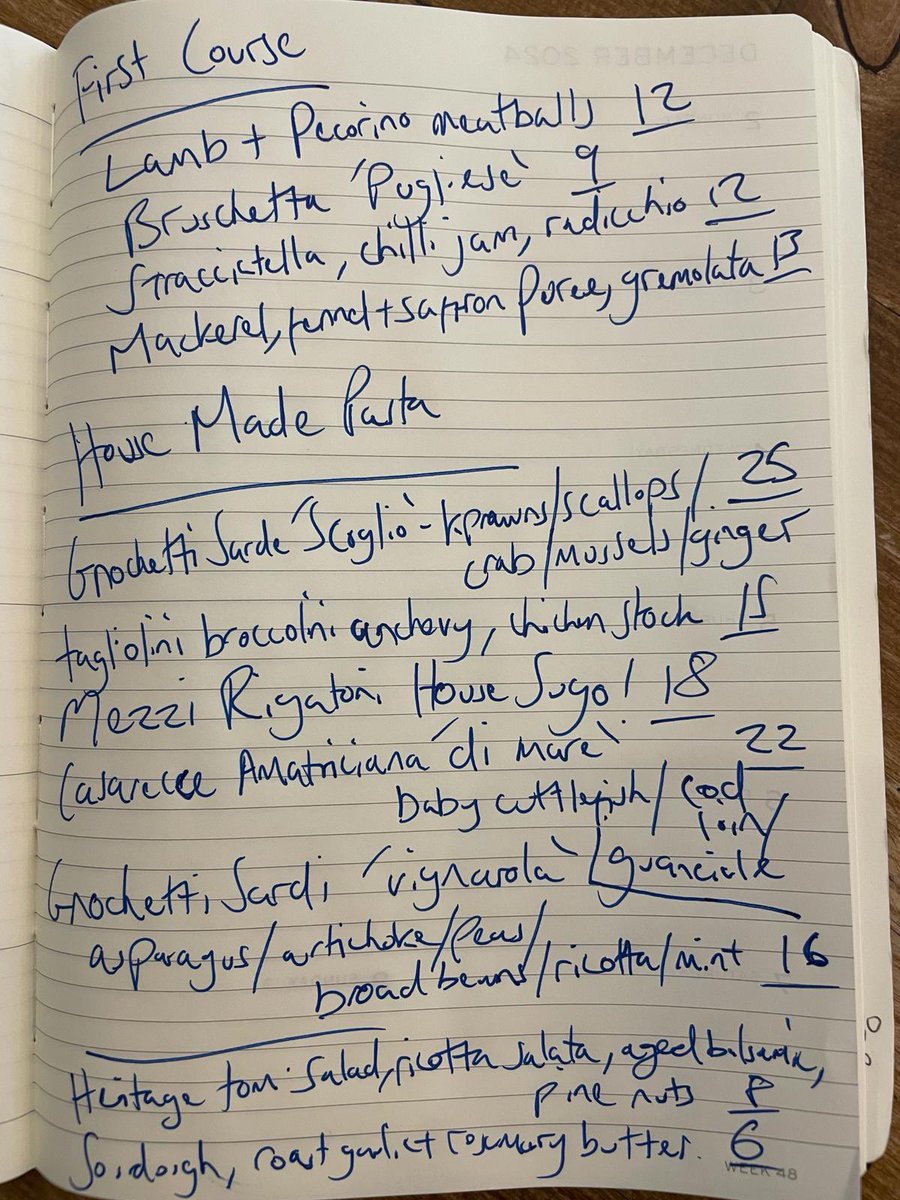 First Course
Lamb + Pecorino meatballs 12
Bruschetta 'Pugliese' 9
Stracciatella, chilli jam, radicchio 12
Mackerel, fennel + saffron puree, gremolata 13
House Made Pasta
Gnochetti Sarde 'Scoglio' - k.prawns/scallops/ 25
crab/mussels/ginger
tagliolini broccolini anchovy, chicken stock 15
Mezzi Rigatoni House Sugo! 18
Casarecce Amatriciana 'di mare' 22
baby cuttlefish/cod
loin/
Gnochetti Sardi 'vignarola' guanciale
asparagus/artichoke/peas/
broad beans/ricotta/mint 16
Heritage tom. Salad, ricotta salata, aged balsamic,
pine nuts 8
Sordorgh, roast garlic + rosemary butter. 6
WEEK 48
DECEMBER 2024